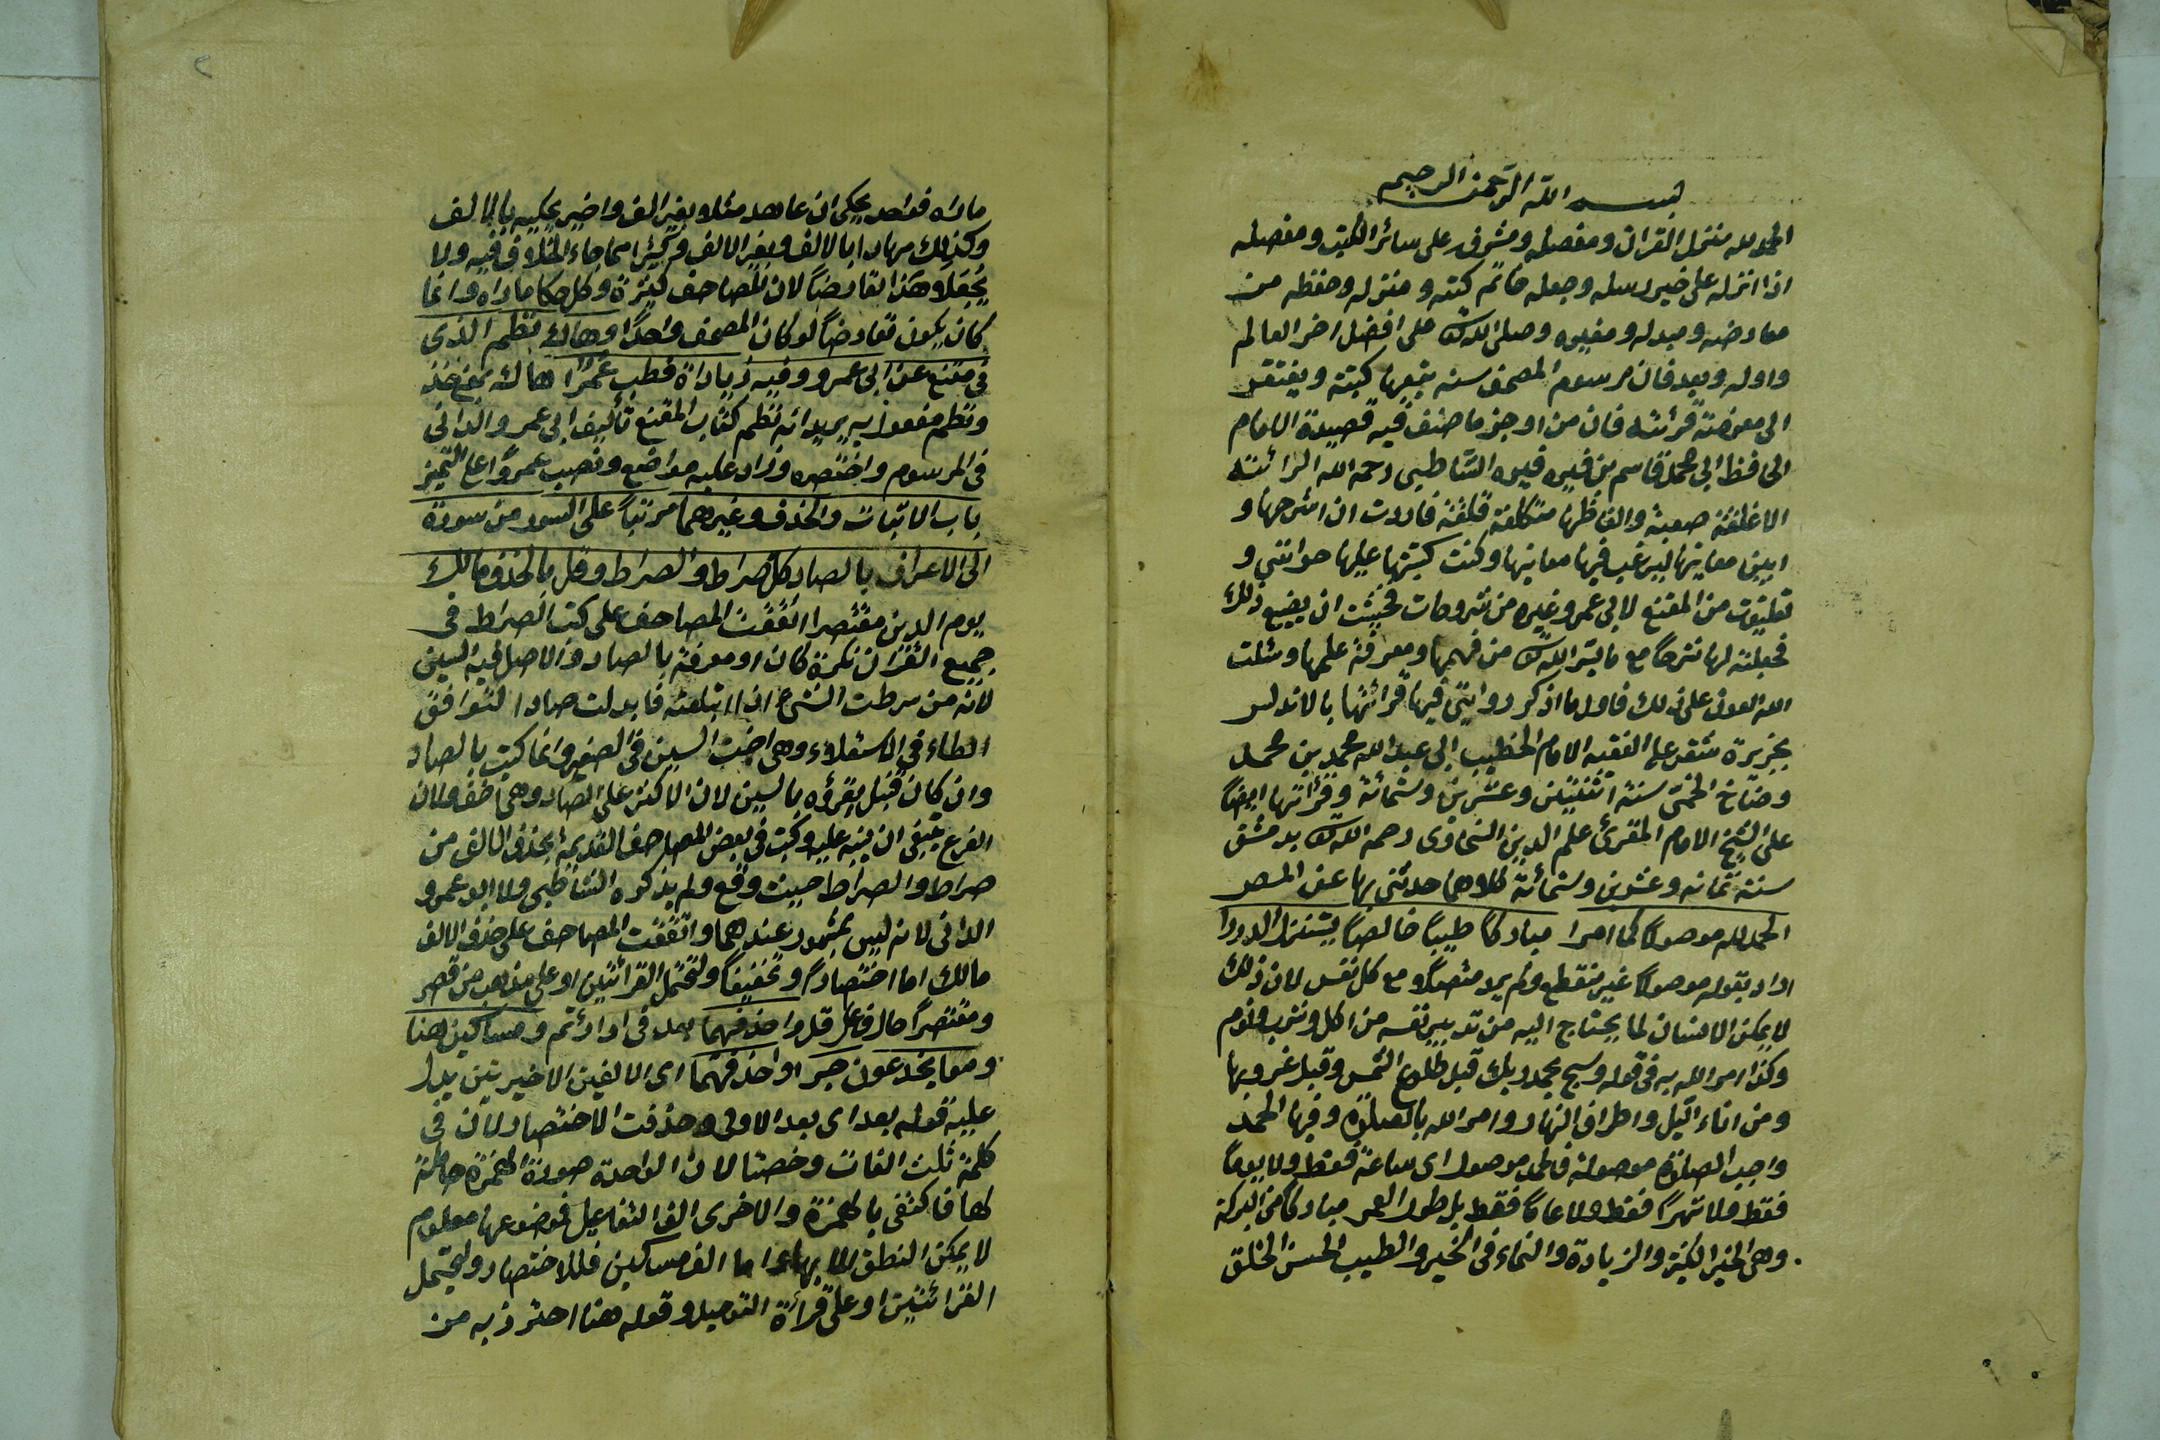 بسم الله الرحمن الرحيم
الحمد لله منزل القران ومفصله ومشرفه على سائر الكتب ومفصله
اذا انزله على خير رسله وجعله خاتم كتبه و منزله وحفظه من
معارضه ومبدله ومغيره وصلى الله على افضل اخر العالم
واوله وبعد فان مرسوم المصحف سنه يتبعها كتبته ويفتقر
الى معرفته قرائته فان من اوجز ما صنف فيه قصيدة الامام
الحافظ ابى محمد قاسم بن فيره الشاطبى رحمه الله الرائية
الا صعبة والفاظها متكلفة قلقة فاردت ان اشرحها و
ابين معاينها ليرغب فيها معانيها وكنت كتبتها عليها حواشى و
تعليقات من المقنع لابى عمرو وغيره من شروحات فخشيت ان يضيع ذلك
فجعلته لها شرحا مع ما يسر الله من فهمها ومعرفة علمها وسئلت
الله العون على ذلك فاول ما اذكر روايتى فيها قرائتها بالاندلس
بجزيرة شقر على الفقيه الامام الخطيب ابى عبد الله محمد بن محمد
وضاح اللخمى سنة اثنتين وعشرين وستمائة وقرأتها ايضاً
على الشيخ الامام المقرئ علم الدين السخاوى رحمه الله بدمشق
سنة ثمانه وعشرين وستمائة كلاهما حدثنى بها عن المصر
الحمد لله موصولاً كما امرا مباركاً طيباً خالصاً يستنزل الدررا
اراد بقوله موصولاً غير منقطع ولم يرد متصلاً مع كل نفس لان ذلك
لا يمكن الانسان لما يحتاج اليه من تدبير نفسه من اكل وشرب ونوم
وكذا امر الله به فى قوله وسبح بحمد ربك قبل طلوع الشمس وقبل غروبها
ومن اناء الليل واطراف النهار وامر الله بالصلوة وفيها الحمد
واجب الصلاة موصولة فالحمد موصول اى ساعة فقط ولا يوماً
فقط ولا شهراً فقط ولا عاماً فقط بل طول العمر مباركا من البركة
وهى الخير الكثير والزيادة والنماء فى الخير والطيب الحسن الخلق
ما رآه فواحد يحكى ان عاهد مثلا بغير الف واخر يحكيه بالالف
وكذلك مهادا بالالف وبغير الالف وكثيرا مما جاء الخلاف فيه ولا
يجعلو هذا تعارضاً لان المصاحف كثيرة وكل حكا ما راه وانما
كان يكون تعارضاً لو كان المصحف واحداً وهاك نظم الذى
فى مقنع عن ابى عمرو وفيه زيادات فطب عمرا هاك بمعنى خذ
ونظم مفعول به يريد انه نظم كتاب المقنع تأليف ابى عمرو الدانى
فى المرسوم واختصره وزاد عليه مواضع ونصب عمراً على التميز
باب الاثبات والحذف وغيرهما مرتباً على السور من سورة
الى الاعراف بالصاد كل صراط والصراط وقل بالحذف مالك
يوم الدين مقتصرا اتفقت المصاحف على كتب الصراط فى
جميع القران نكرة كان او معرفة بالصاد والاصل فيه السين
لانه من سرطت الشئ اذا ابتلعته فابدلت صادا لتوافق
الطاء فى الاستعلاء وهى اخت السين فى الصفير وانما كتبت بالصاد
وان كان قنبل يقرؤه بالسين لان الاكثر على الصاد وهى اخف ولان
الفرع ينبغى ان ينبه عليه وكتب فى بعض المصاحف القديمة بحذف الالف من
صراط والصراط حيث وقع ولم يذكره الشاطبى ولا ابو عمرو
الدانى لانه ليس بمشهور عندهما واتفقت المصاحف على حذف الالف
مالك اما اختصاراً وتخفيفاً ولتحتمل القرائتين او على مذهب من قصر
ومقتصراً حال فاعل قل واحذفهما بعد فى ادارئتم ومساكين هنا
ومعا يخدعون جرى او احذفهما اى الالفين الاخيرتين يدل
عليه قوله بعد اى بعد الاولى وحذفت الاختصار لان فى
كلمة ثلث الفات وخصتا لان الواحدة صورة الهمزة حاملة
لها فاكتفى بالهمزة والاخرى الف التفاعيل فوضوعها معلوم
لا يمكن النطق الا بها واما الف مساكين فللاختصار ولتحتمل
القرائتين او على قراءة التوحيد وقوله هنا احترز به من